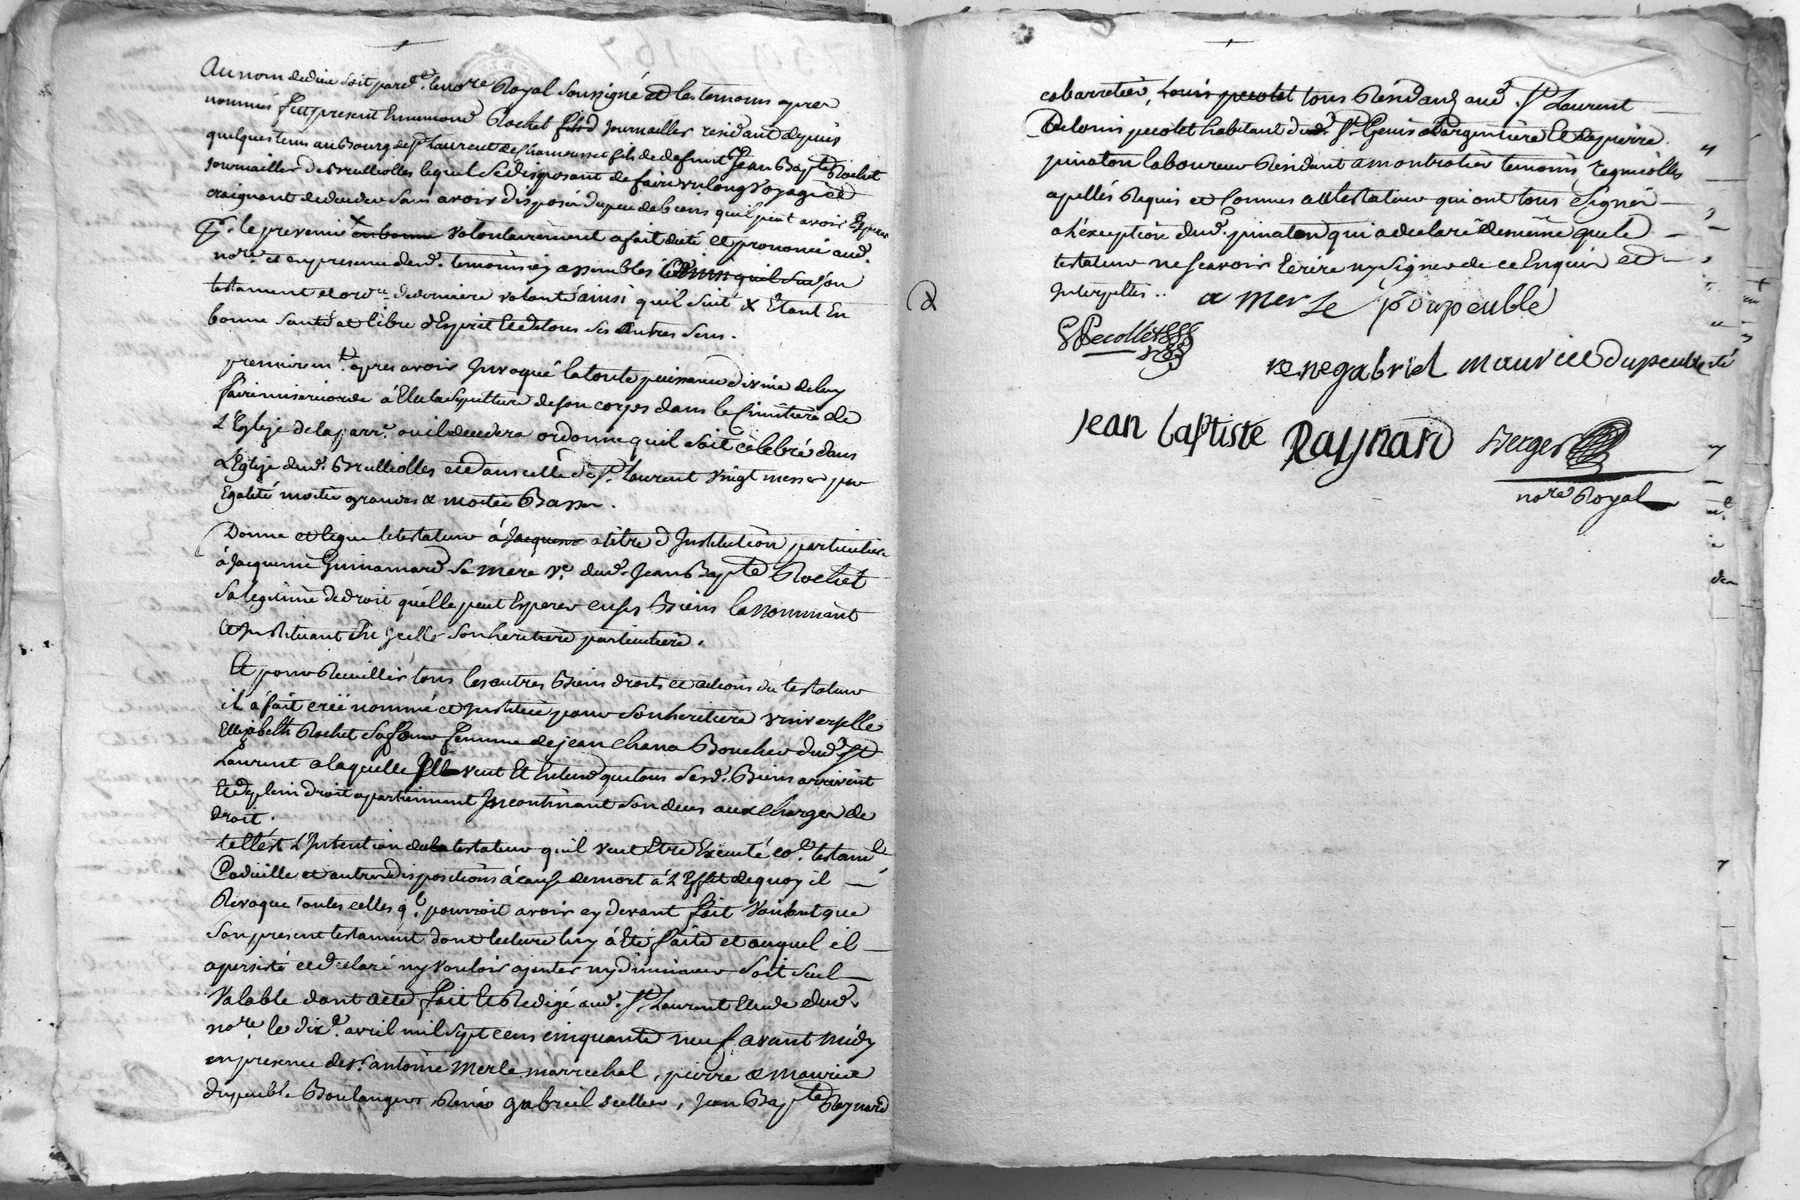 Au nom de dieu soit pard.t le no.re Royal soussigné et les temoins apres
nommés fut present Ennemond Rochet journallier residant depuis
quelques tems au Bourg de S.t Laurent de chamousset fils de defunt Jean Bap.te Rochet
journallier de Brulliolles lequel se disposant de faire un long voyage et
craignant de deceder sans avoir disposé du peu de biens qu'il peut avoir
le prevenir x en bonne volontairement a fait dicté et prononcé aud.
no.re et en presence desd. temoins ey assemblés son
testament et ord.ce de derniere volonté ainsi qu'il suit x Etant En
bonne santé et libre d'Esprit et de tous ses autres sens.
premierem.t apres avoir Invoqué la toute puissance divine de luy
faire misericorde a Elu la sepulture de son corps dans le simitiere de
L'Eglize de la parr.e ou il decedera ordonne quil soit celebré dans
L'Eglize dud. Brulliolles et dans celle de S.t Laurent vingt messes par
Egalité moitié grandes & moitié Basses.
Donne et legue le testateur à Jacquême a titre d'Institution particuliere
à Jacquême Guinamard sa mere v.e dud. Jean Bap.te Rochet
sa legitime de droit qu'elle peut Esperer en ses Biens la nommant
et Instituant en icelle son heritiere particuliere.
Et pour Recuillir tous les autres Biens droits et actions du testateur
il a fait créé nommé et Institué pour son heritiere universelle
Elizabeth Rochet sa sœur femme de jean chana Boucher dud. S.t
Laurent a laquelle Il veut Et Entend que tous sesd. Biens arrivent
et de plein droit apartiennent Incontinant son deces aux charges de
droit.
telle est L'Intention du testateur qu'il veut Etre Executé co.e testam.t
Codicille et autres dispositions à cause de mort à L'Effet de quoy il
Revoque toutes celles q.l pourroit avoir cy devant fait voulant que
son present testament dont lecture luy à Eté faite et auquel il
a persisté et declaré ny vouloir ajouter ny diminuer soit seul
valable dont acte fait Et Redigé aud. S.t Laurent Etude dud.
no.re le dix.e avril mil sept cens cinquante neuf avant midy
en presence de s.r antoine Merle marrechal, pierre & maurice
dupeuble Boulangers, Réné gabriel sellier, Jean Bap.te Raynard
cabarretier, Louis pecolet tous Residans aud. S.t Laurent
De louis pecolet habitant dud. S.t Genis L'argentiere Et de pierre
pinaton laboureur Residant a montrotier temoins
apellés Requis et connus au testateur qui ont tous signé
à L'exception dud. pinaton qui a declaré de même que le
testateur ne scavoir Ecrire ny signer de ce Enquis et
Interpellés..
a merle p dupeuble
Pecollet
rene gabriel maurice dupeuble
Jean baptiste Raynard Berger
no.re Royal